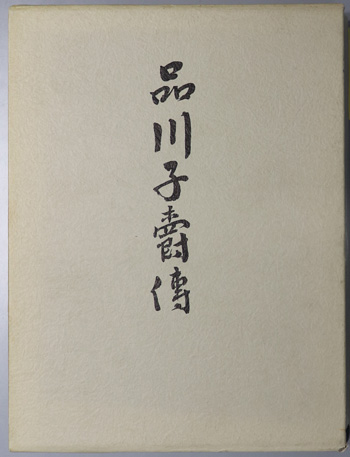 品川子爵傳